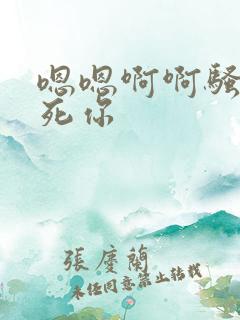 嗯嗯啊啊骚
死你
張慶蘭
未经同意禁止转载